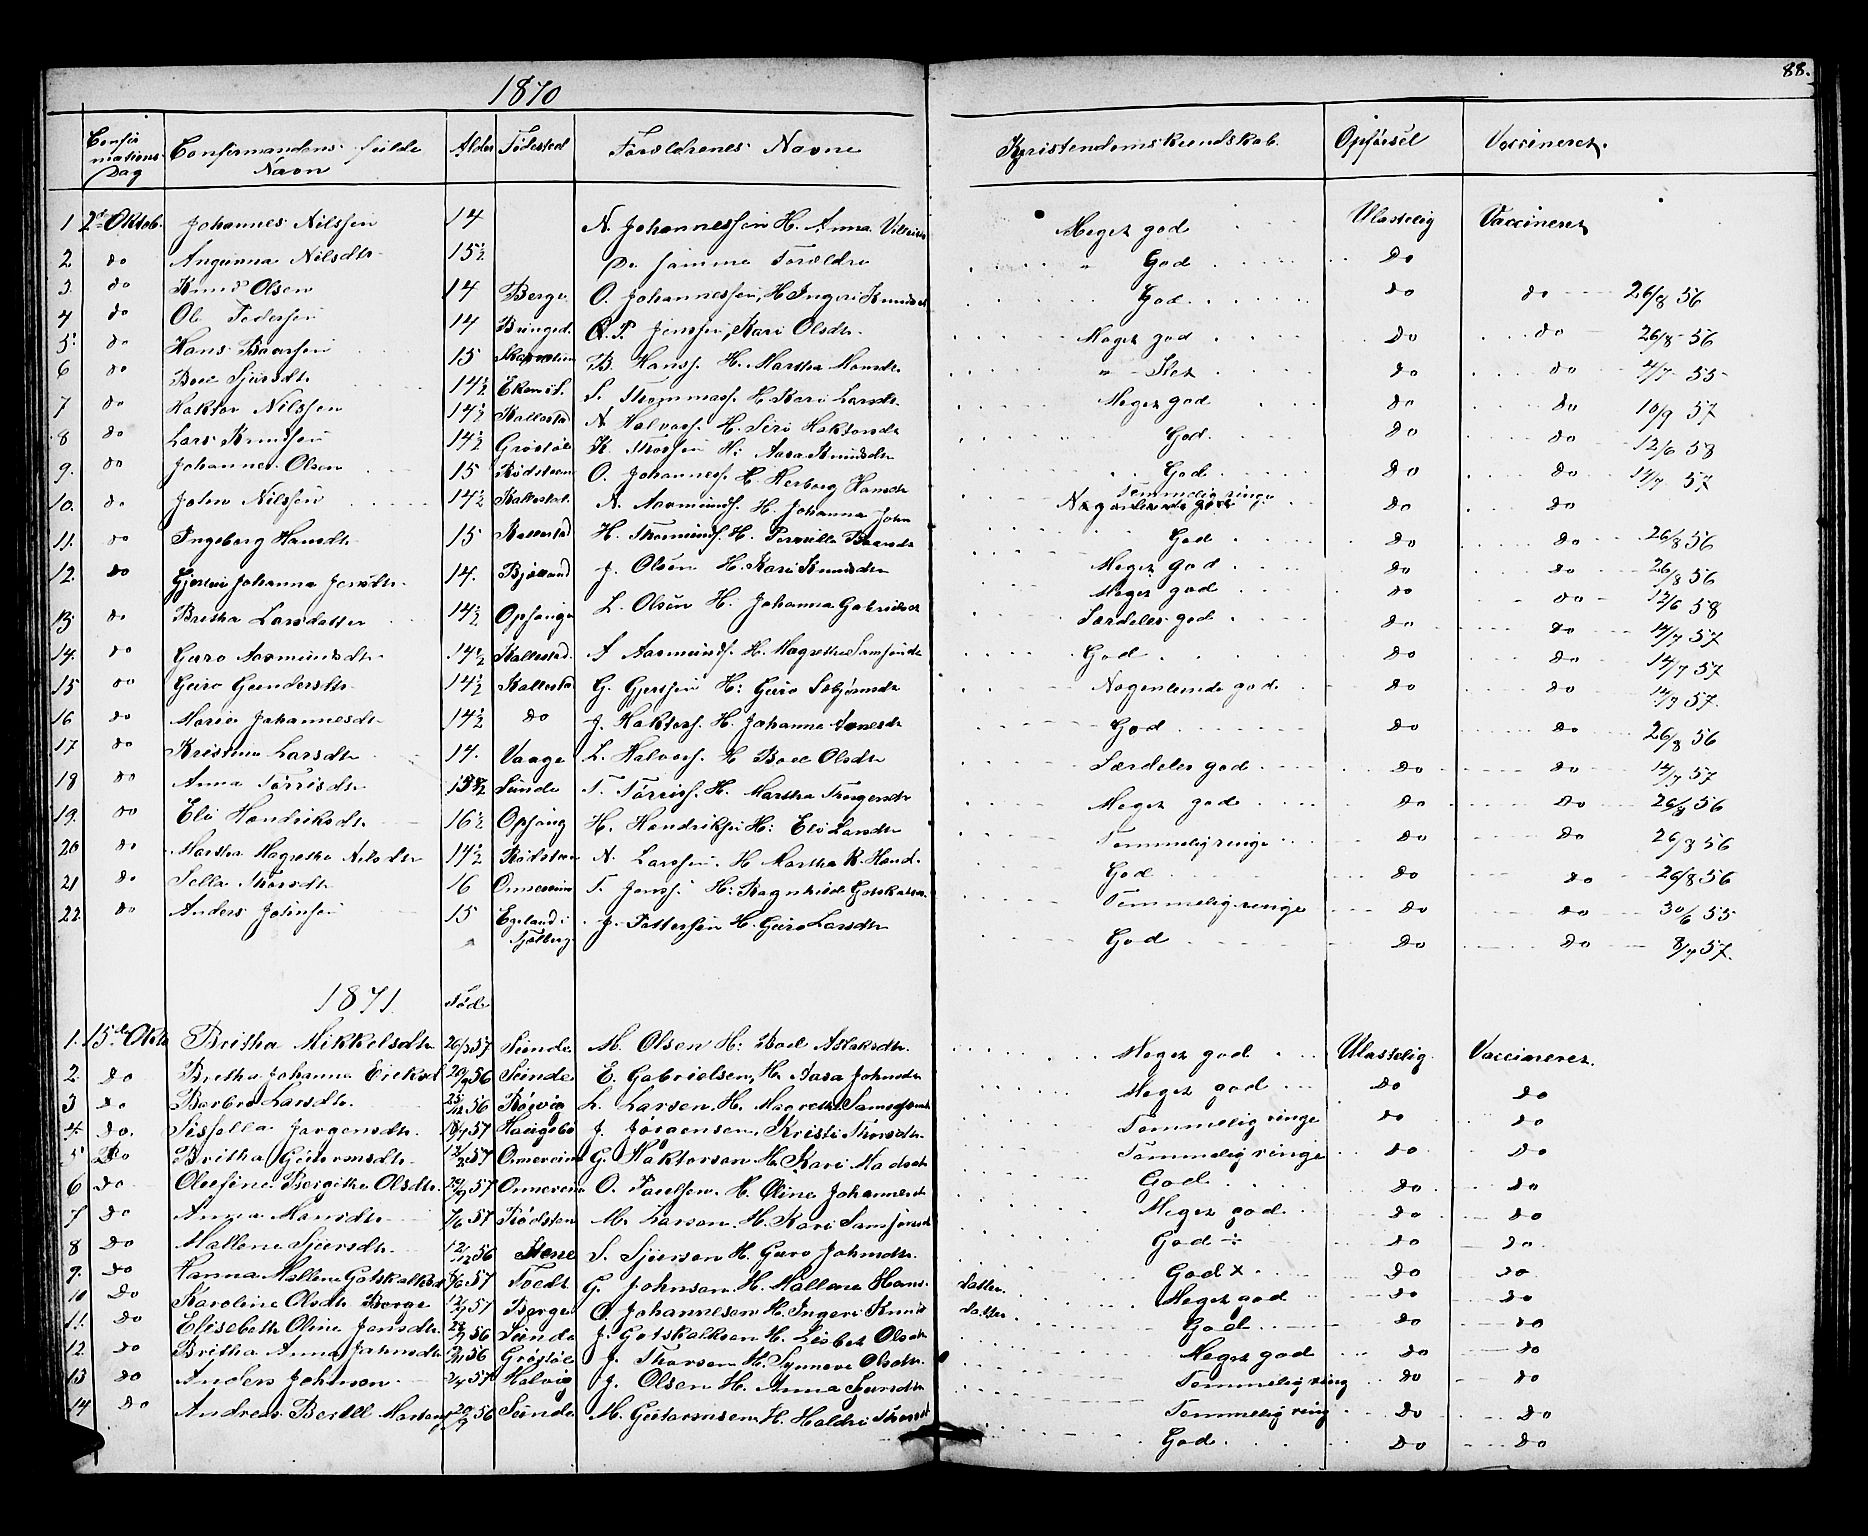 88.
1870
Confirmations Dag | Confirmandens fulde Navn | Alder | Fødested | Forældrenes Navne | Kristendomskundskab. | Opførsel | Vaccineret.
1 2d Oktob. Johannes Nilssen 14 N. Johannessen H. Anna Meget god Ulastelig Vaccineret
2 do Angunna Nilsdtr 15½ De samme Forældre " God do
3. do Knud Olsen 14 Berge O. Johannessen, H. Ingeri Knudsd God do do 26/8 56
4 do Ole Pedersen 14 P. Jenssen, Kari Olsdtr Meget god do do 26/8 56
5 do Hans Baarsen 15 B. Hanss. H. Martha Hansdtr " Slet do do 4/7 55
6 do Boel Sjursdtr 14½ S. Thommass. H. Kari Larsdtr Meget god do do 10/9 57
7 do Haktor Nilssen 14½ Kallestad N Halvors. H. Siri Haktorsdt God. do do 12/6 58
8 do Lars Knudsen 14½ Grøstøl K. Thorssen H: Aasa Knudsdtr God do do 14/7 57
9. do Johannes Olsen 15 Rødsteen O. Johanness. H. Herborg Hansdtr Temmelig ringe do do
10. do John Nilssen 14½ Kallestad N. Aasmunds. H. Johanna John God do do 26/8 56
11. do Ingeborg Hansdtr 15 Kallestad H. H. Pernille Meget god do do 26/8 56
12. do Johanna Jensdtr 14. Bjelland J. Olsen H. Kari Knudsdtr Meget god do do 12/6 58
13 do Britha Larsdatter 14½ Opsanger L. Olsen H. Johanna Gabrielsd Særdeles god do do 14/7 57
14. do Guro Aasmundsdtr 14½ Kallestad. A Aasmunds. H. Magrethe Samsonsdtr God do do 14/7 57
15 do Guro Gundersdtr 14½ Kallestad G. H: Guro Nogenlunde god do do 14/7 57.
16 do Maria Johannesdtr 14½ do J. Haktors. H. Johanna God do do 26/8 56
17 do Kristina Larsdtr 14. Vaage L. Halvors. H Boel Olsdtr Særdeles god do do 14/7 57
18 do Anna Tørrisdtr Sunde T. Tørris. H. Martha Meget god do do 26/8 56
19. do Eli Hendriksdtr 16½ Opsang H. Hendriks. H: Eli Larsdtr Temmelig ringe do do 26/8 56
20 do Martha Magretha Nilsdtr 14½ Rødsteen N. Larssen. H Martha K. Hand. God do do 26/8 56
21 do Sella Thorsdtr 16 Onnereim T. Jenss. H: Ragnhild Gotskalks. Temmelig ringe do do 30/6 55
22 do Anders Johnsen 15 Egeland i Fjelberg J. H. Guro Larsdtr God do do 8/7 57.
1871. Født
1. 15de Okto Britha Mikkelsdtr 57 Sunde M. Olsen H: Boel Aslaksdtr. Meget god Ulastelig Vaccineret.
2. do Britha Johanna Eriksd 56 Sunde E. Gabrielsen, H. Aasa Johnsdtr Meget god do do
3 do Barbro Larsdtr. 56 Røgvig L. Larsen. H. Magrethe Samsonsdt Temmelig ringe do do
4. do. Sissella Jørgensdtr. 57 Haugebø J. Jørgensen, Kristi Thorsdtr Temmelig ringe do do
5 do Britha Gutormsdtr. 57 Onnereim G. Haktorson H. Kari Madsdtr God do do
6 do Olefine Bergitha Olsdtr. 57 Onnereim O. H. Oline Johannesdt Meget god do do
7 do Anna Monsdtr 57 Rødsten M. Larsen. H. Kari Samsonsdt God ÷ do do
8 do Mallene Sjursdtr. 56 S. Sjursen H. Guro Johnsdtr. God × do do
9. do Hanna Mallene Gotskalksd 57 Toedt G. Johnsen. H. Mallene Hans- datter. Meget god do do
10 do Karoline Olsdtr Berge 57 Berge O. Johannesen H. Ingeri Knuds datter. God do do
11. do Elisebeth Oline Jensdtr. 56 Sunde J. Gotskalksen H. Lisbet Olsdtr Meget god do do
12. do Britha Anna Johnsdtr 56 Grøstøl J. Thorsen H. Synneve Olsdtr. Temmelig ring do do
13 do Anders Johnson 57 Halvig J. Olsen H. Anna Sjursdtr Temmelig ring do do
14 do Andreas Bertel 56 Sunde M. Gutormsen H. Haldri God. do do